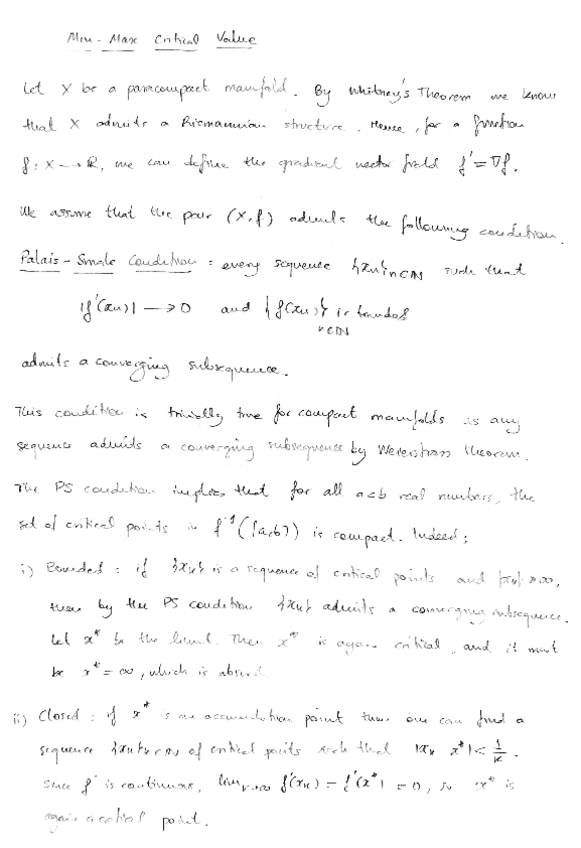 Min-Max Critical Value
Let X be a paracompact manifold. By Whitney's Theorem we know
that X admits a Riemannian structure. Hence, for a function
f: X → ℝ, we can define the gradient vector field f' = ∇f.
We assume that the pair (X,f) admits the following condition.
Palais-Smale Condition: every sequence {xn}n∈ℕ such that
|f'(xn)| → 0 and {f(xn)}n∈ℕ is bounded
admits a converging subsequence.
This condition is trivially true for compact manifolds as any
sequence admits a converging subsequence by Weierstrass theorem.
The PS condition implies that for all a<b real numbers, the
set of critical points in f⁻¹([a,b]) is compact. Indeed:
i) Bounded: if {xn} is a sequence of critical points and |xn| → ∞,
then by the PS condition {xn} admits a converging subsequence.
Let x* be the limit. Then x* is again critical, and it must
be x* = ∞, which is absurd.
ii) Closed: if x* is an accumulation point then one can find a
sequence of critical points such that |xk x*| < 1/k.
Since f' is continuous, f'(xn) = f'(x*) = 0, so x* is
again a critical point.